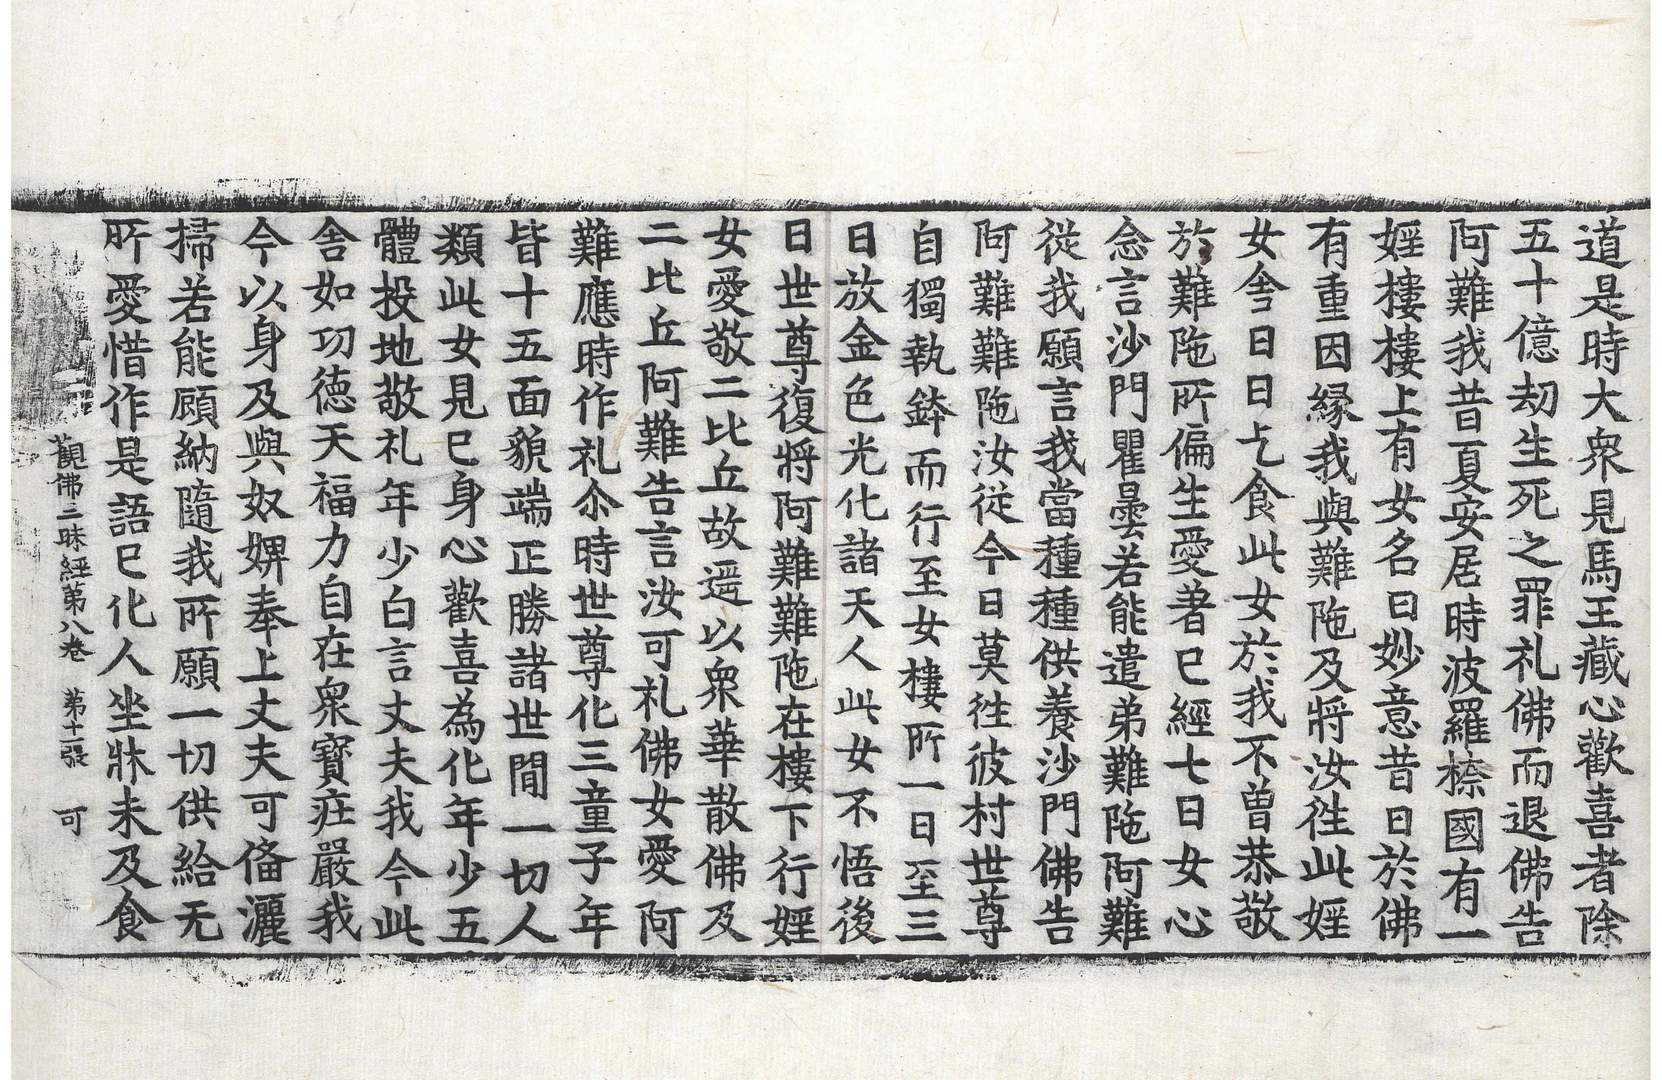 道是時大衆見馬王藏心歡喜者除
五十億劫生死之罪礼佛而退佛告
阿難我昔夏安居時波羅㮈國有一
婬樓樓上有女名曰妙意昔日於佛
有重因緣我與難陁及將汝徃此婬
女舍日日乞食此女於我不曾恭敬
於難陁所偏生愛著已經七日女心
念言沙門瞿曇若能遣弟難陁阿難
從我願言我當種種供養沙門佛告
阿難難陁汝從今日莫徃彼村世尊
自獨執鉢而行至女樓所一日至三
日放金色光化諸天人此女不悟後
日世尊復將阿難難陁在樓下行婬
女愛敬二比丘故遥以衆華散佛及
二比丘阿難告言汝可礼佛女愛阿
難應時作礼尒時世尊化三童子年
皆十五面貌端正勝諸世間一切人
類此女見已身心歡喜為化年少五
體投地敬礼年少白言丈夫我今此
舍如功德天福力自在衆寶莊嚴我
今以身及與奴婢奉上丈夫可俻灑
掃若能顧納隨我所願一切供給无
所愛惜作是語已化人坐牀未及食
觀佛三昧經第八卷 第十二張 可